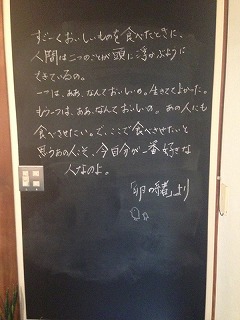 すごーくおいしいものを食べたときに、
人間は二つのことが頭に浮かぶように
できているの。
一つは、ああ、なんておいしいの。生きててよかった。
もう一つは、ああ、なんておいしいの。あの人にも
食べさせたい。で、ここで食べさせたいと
思うあの人こそ、今自分が一番好きな
人なのよ。
「卵の緒」より